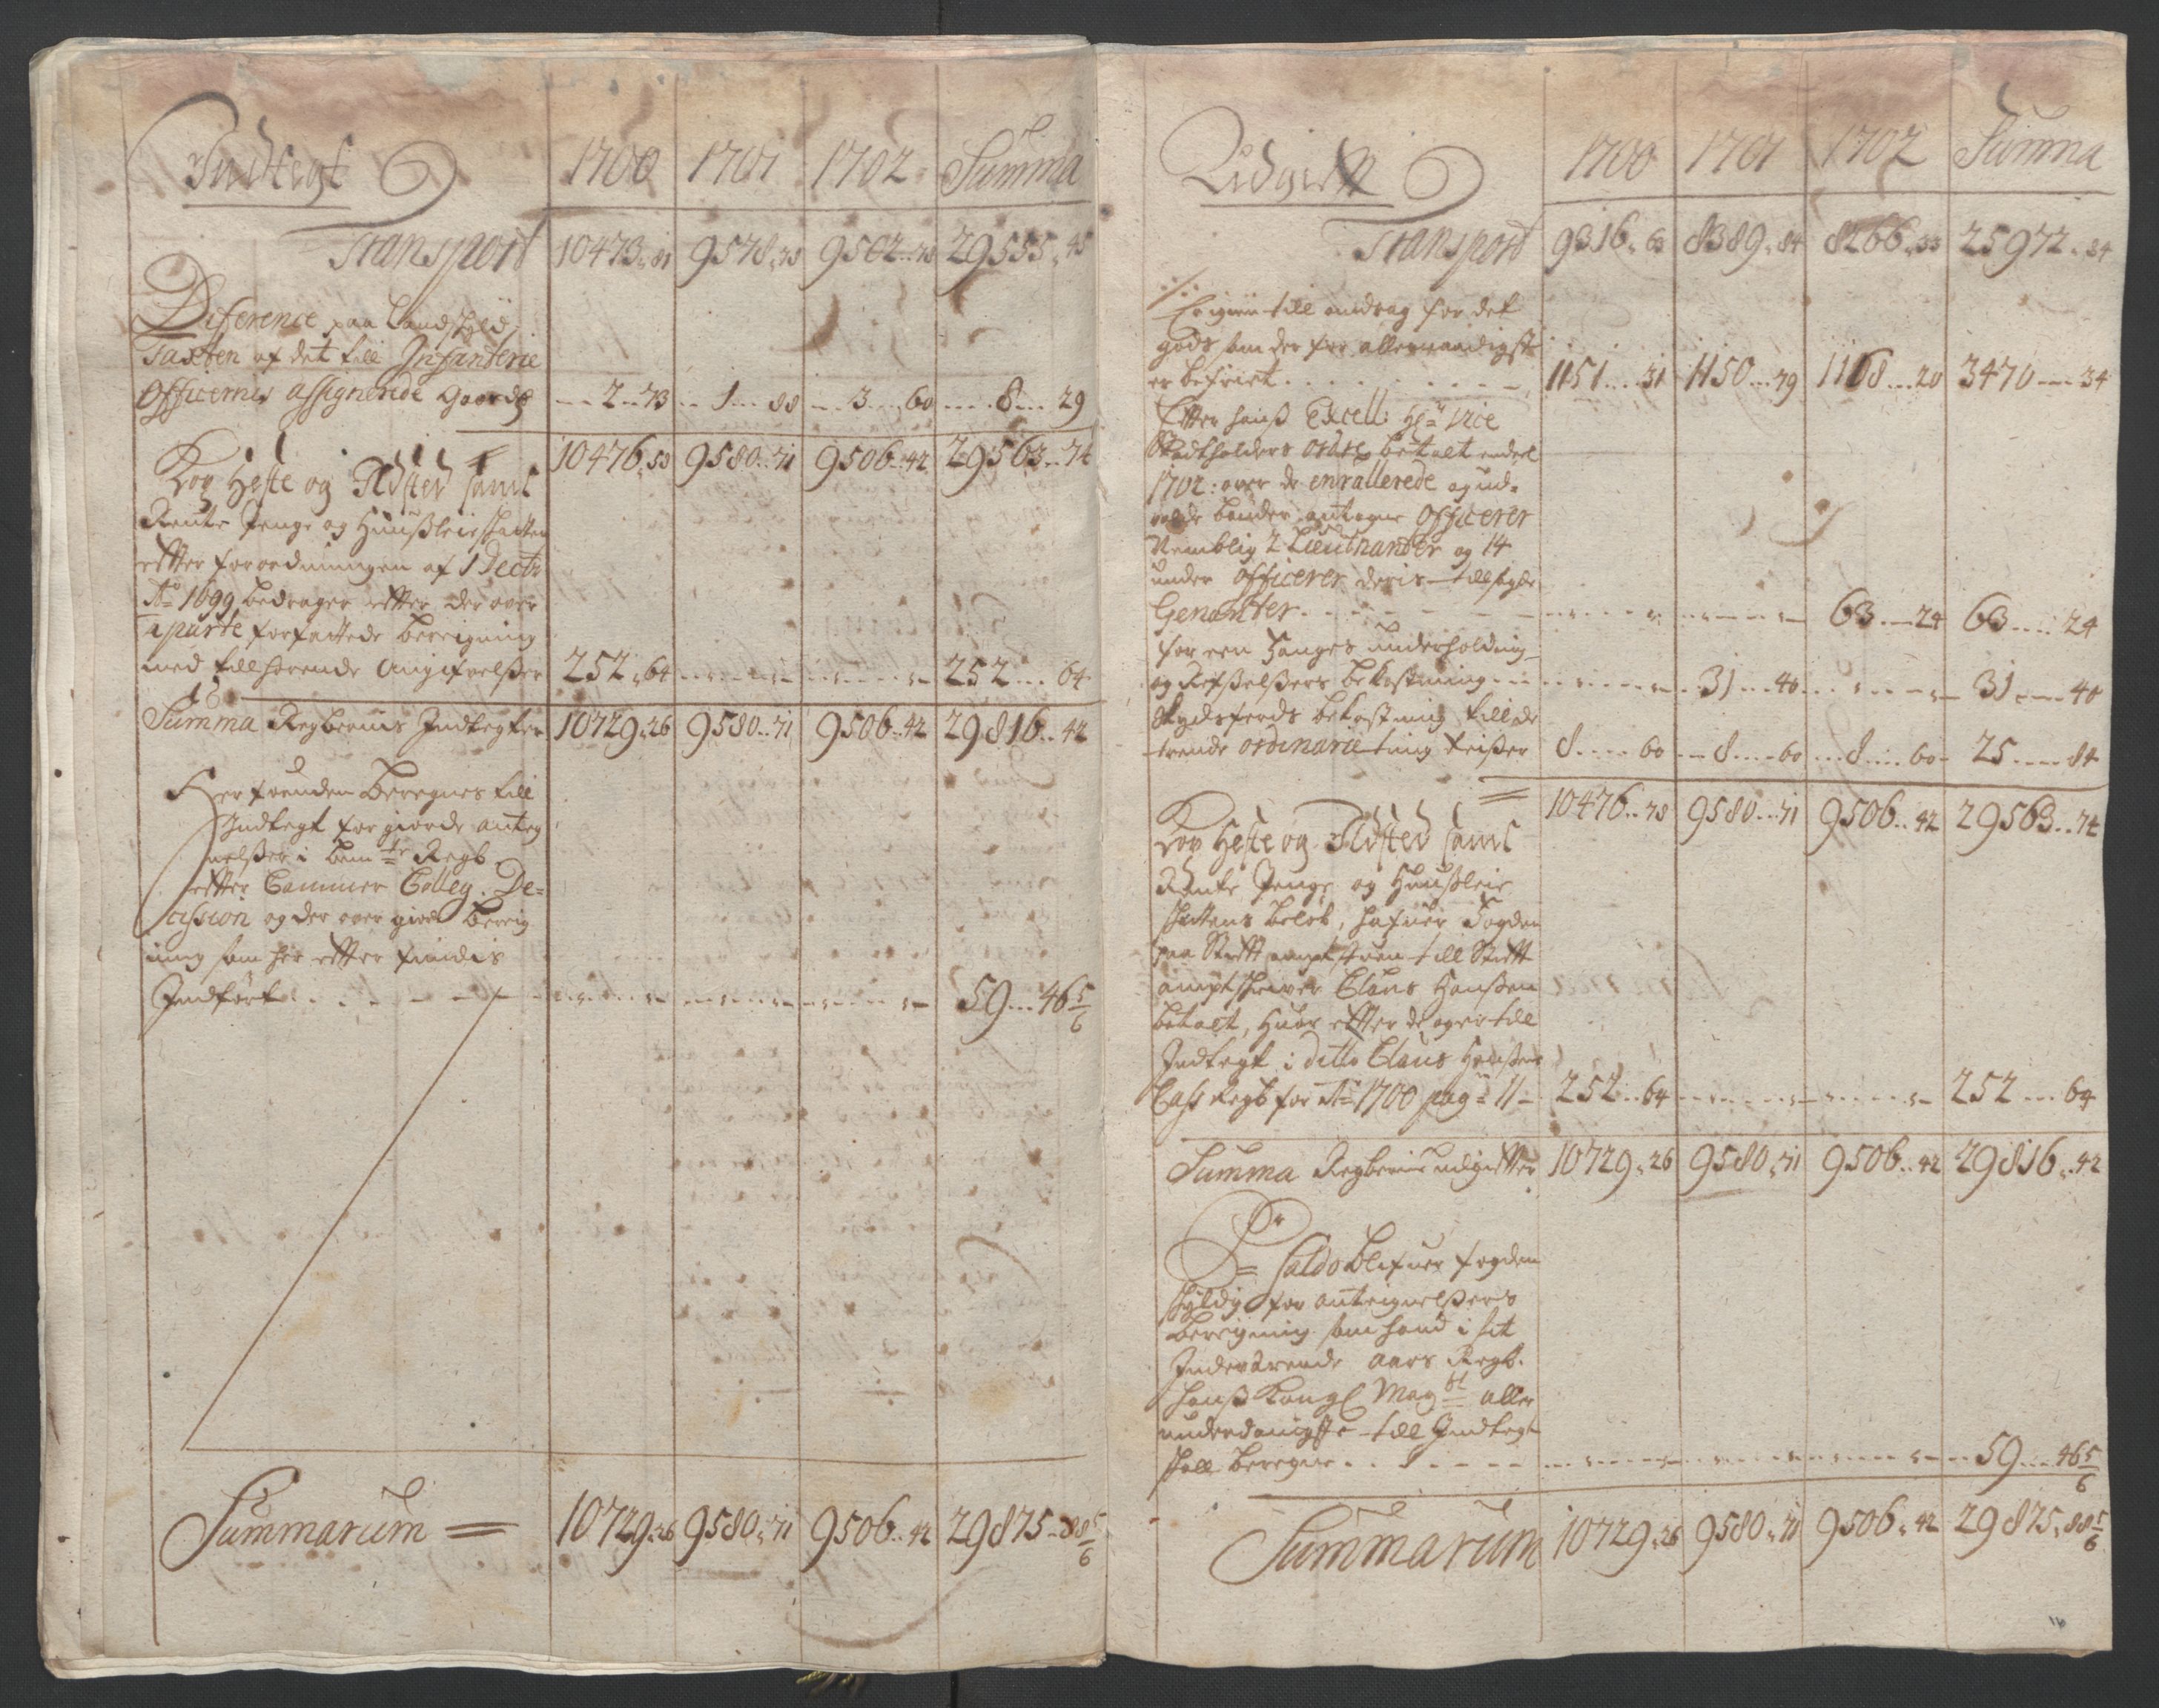 Indtegt 1700 1701 1702 Summa
Transport 10473 „ 81 9578 „ 79 9502 .. 78 29555 „ 45
Difference paa Landskyld
Taxten af det till Infanterie
Officernes assignerede Gaarde -- 2 -- 73 -- 1 -- 88 -- 3 -- 60 -- 8 -- 29
10476 „ 58 9580 .. 71 9506 .. 42 29563 .. 74
Kop Heste og Ildsted samt
Rente Penge og Huusleie skatten
effter forordningen af 1 Decbr
Ao 1699 bedrager effter der over
aparte forfattede beregning
med tillhørende Angifvelser 252 „ 64 252 ... 64
Summa Regbenes Indtegter 10729 „ 26 9580 .. 71 9506 .. 42 29816 .. 42
Her foruden Beregnes till
Indtegt for giorde anteg
nelser i bemte Regb.
effter Cammer Colleg. De=
cission og der over giort bereg
ning som her effter findis
Indført 59 ... 46 5/6
Summarum = 10729 „ 26 9580 „ 71 9506 .. 42 29875 .. 88 5/6
Udgifft 1700 1701 1702 Summa
Transport 9316 „ 63 8389 „ 84 8266 „ 33 25972 „ 84
Erigen till andrag for det
gods som der for allernaadigst
er befriet 1151 ... 31 1150 ... 79 1168 ... 20 3470 --- 34
Effter hans Excell: Hr Vice
Stadtholders ordre betalt
1702: over de enrollerede og ud=
valde bønder antagne Officerer
Nemblig 2 Lieuthnanter og 14
under officerer deris tillagde
Genanter 63 --- 24 63 .... 24
for een Fanges underholdning
og Refselsers bekostning 31 ... 40 31 --- 40
Skydsferds bekostning till de
trende ordinarie ting Reiser 8 .... 60 -- 8 --- 60 -- 8 .... 60 25 ---- 84
10476 .. 78 9580 ... 71 9506 .. 42 29563 .. 74
Kop Heste og Ildsted samt
Rente Penge og Huusleie
skattens beløb, hafuer Fogden
paa Stifft ampt stuen till Stifft
amptskriver Claus Hansen
betalt, huor effter de ogsaa till
Indtegt i ditto Claus Hansens
Cass Regb for Ao 1700 pag: 11 252 .. 64 252 ... 64
Summa Regbens udgiffter 10729 „ 26 9580 „ 71 9506 .. 42 29816 „ 42
Pr
Saldo blifuer fogden
skyldig for antegnelsers
beregning som hand i sit
Indeverende Aars Regb.
hans Kongl Mayst aller
underdanigste till Indtegt
skall beregne 59 ... 46 5/6
Summarum 10729 „ 26 9580 „ 71 9506 „ 42 29875 „ 88 5/6
16